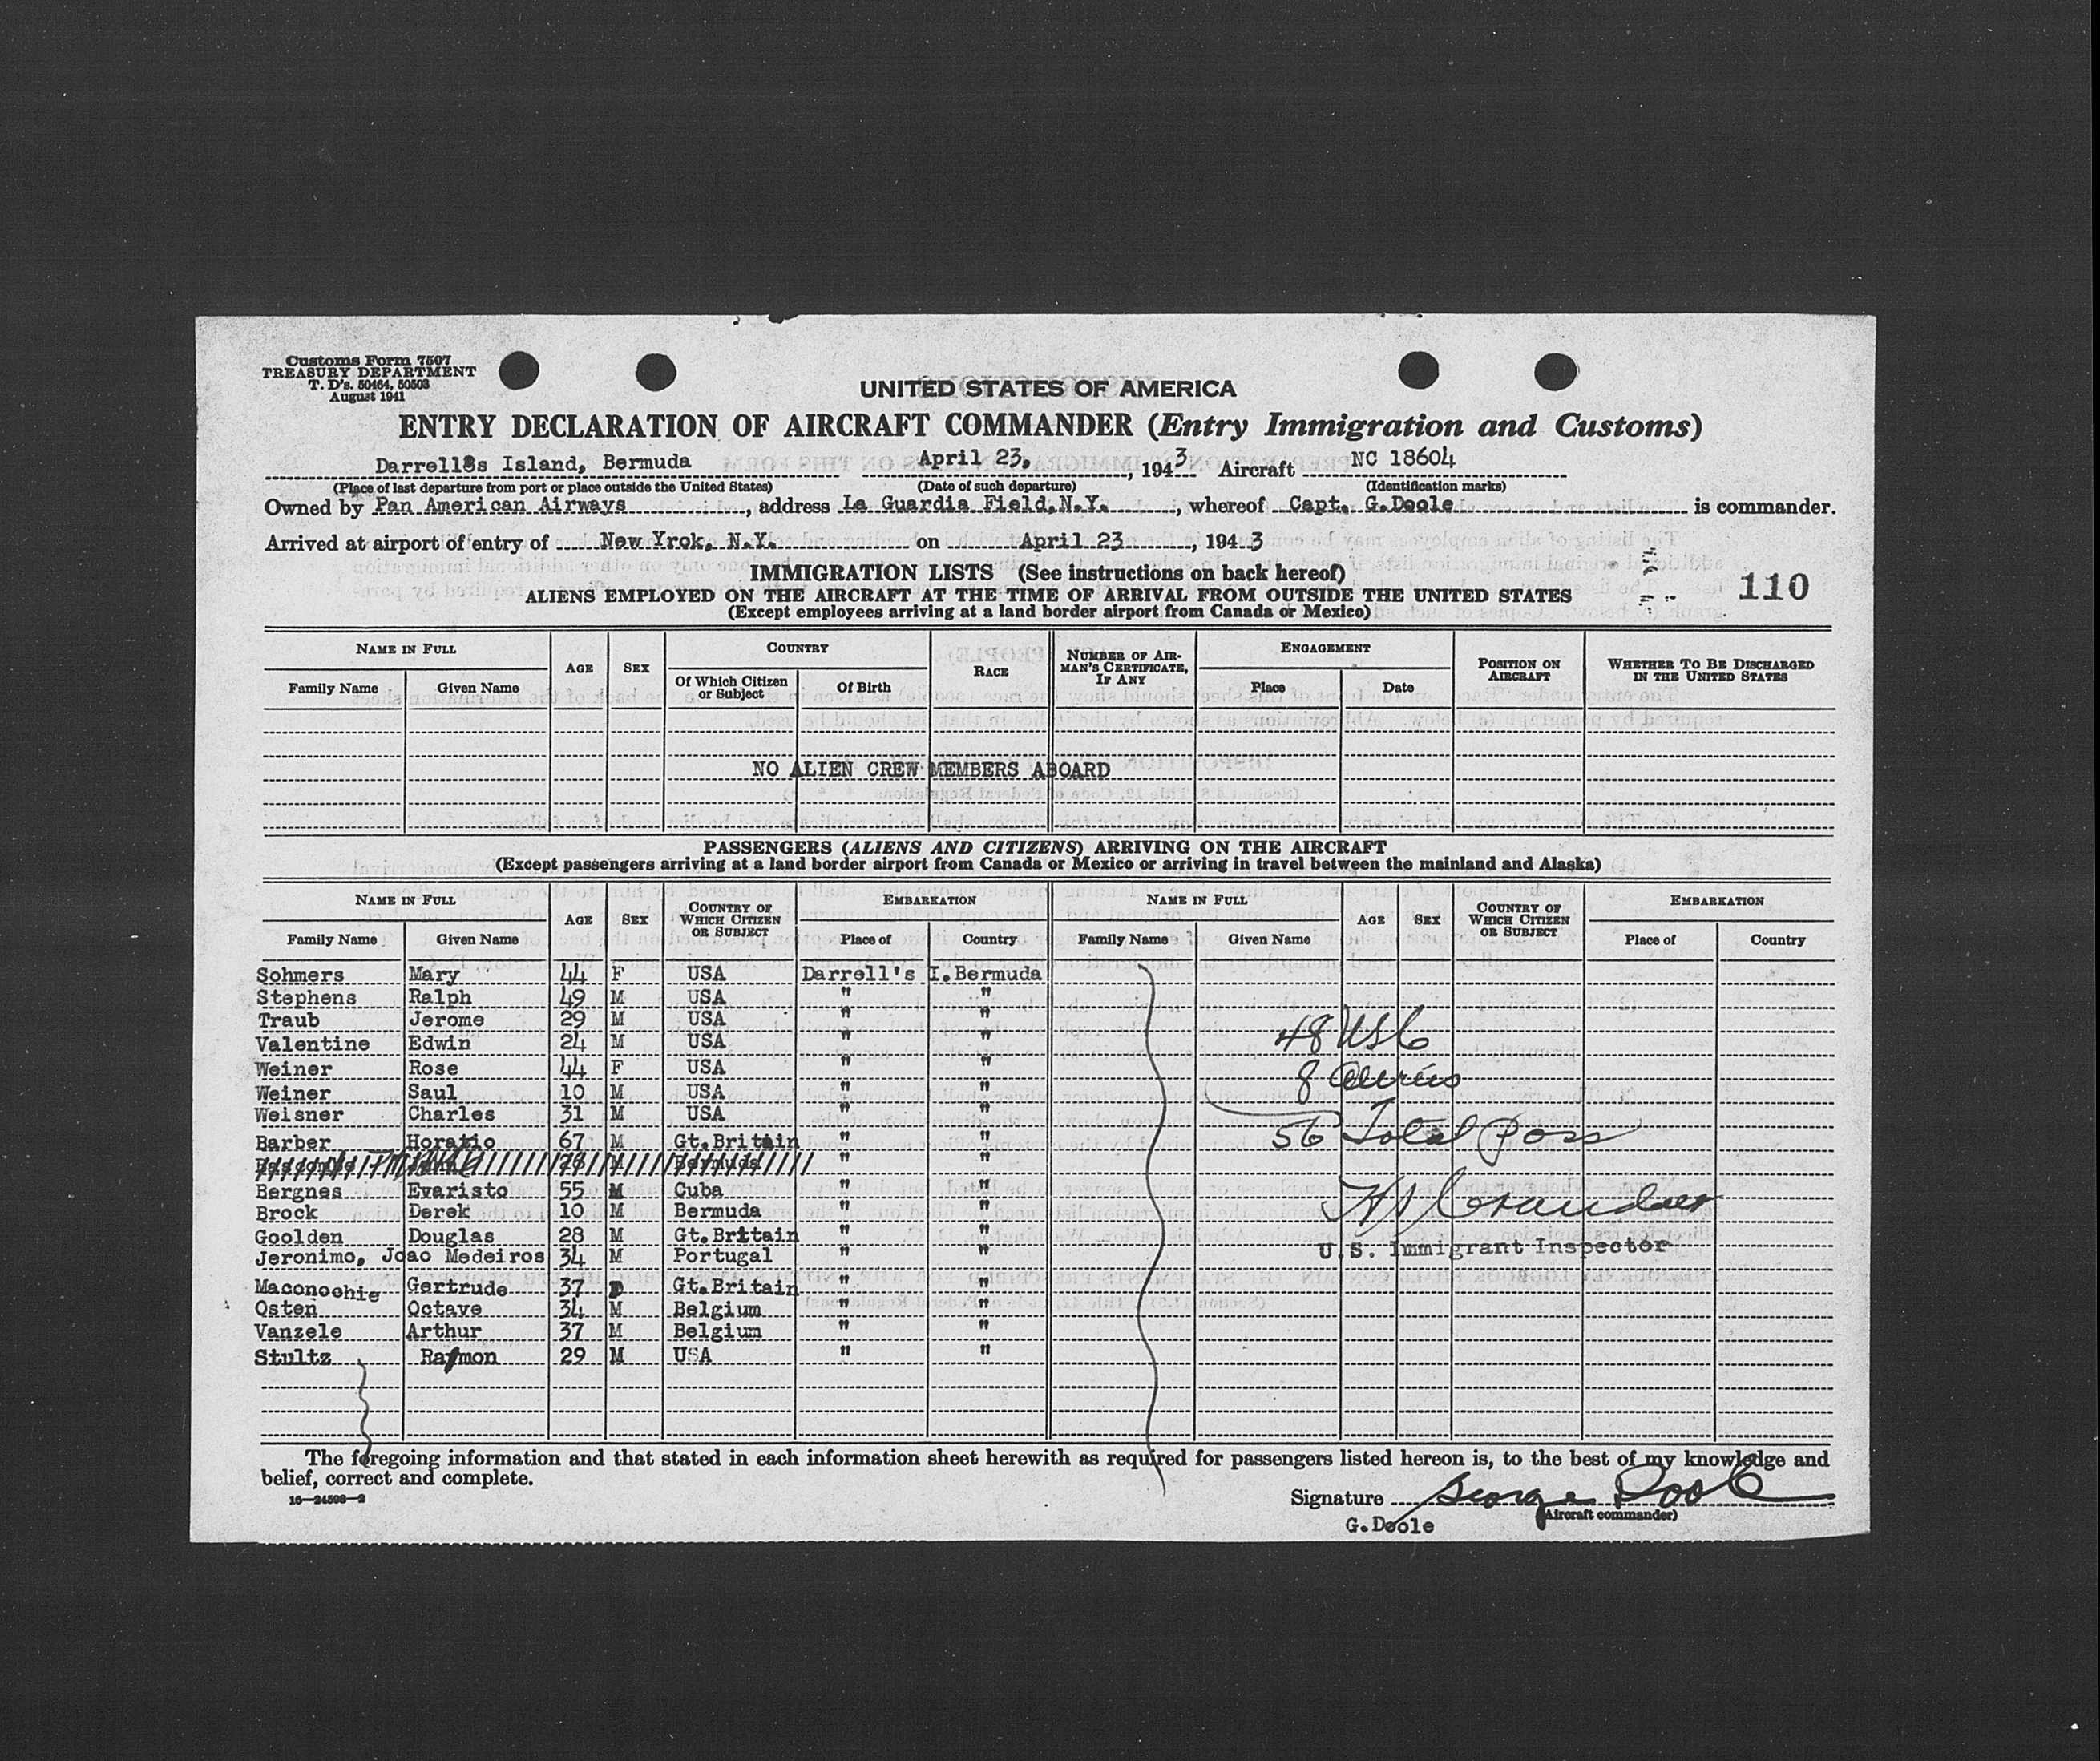 Customs Form 7507
TREASURY DEPARTMENT
T. D's. 50464, 50503
August 1941
UNITED STATES OF AMERICA
ENTRY DECLARATION OF AIRCRAFT COMMANDER (Entry Immigration and Customs)
Darrell8s Island, Bermuda April 23, , 1943 Aircraft NC 18604
(Place of last departure from port or place outside the United States) (Date of such departure) (Identification marks)
Owned by Pan American Airways , address La Guardia Field,N.Y. , whereof Capt. G.Doole is commander.
Arrived at airport of entry of New Yrok, N.Y. on April 23 , 1943
IMMIGRATION LISTS (See instructions on back hereof)
110
ALIENS EMPLOYED ON THE AIRCRAFT AT THE TIME OF ARRIVAL FROM OUTSIDE THE UNITED STATES
(Except employees arriving at a land border airport from Canada or Mexico)
NAME IN FULL AGE SEX COUNTRY RACE NUMBER OF AIRMAN'S CERTIFICATE, IF ANY ENGAGEMENT POSITION ON AIRCRAFT WHETHER TO BE DISCHARGED IN THE UNITED STATES
Family Name Given Name Of Which Citizen or Subject Of Birth Place Date
NO ALIEN CREW MEMBERS ABOARD
PASSENGERS (ALIENS AND CITIZENS) ARRIVING ON THE AIRCRAFT
(Except passengers arriving at a land border airport from Canada or Mexico or arriving in travel between the mainland and Alaska)
NAME IN FULL AGE SEX COUNTRY OF WHICH CITIZEN OR SUBJECT EMBARKATION NAME IN FULL AGE SEX COUNTRY OF WHICH CITIZEN OR SUBJECT EMBARKATION
Family Name Given Name Place of Country Family Name Given Name Place of Country
Sohmers Mary 44 F USA Darrell's I.Bermuda
Stephens Ralph 49 M USA " "
Traub Jerome 29 M USA " "
Valentine Edwin 24 M USA " " 48 USC
Weiner Rose 44 F USA " " 8 Aliens
Weiner Saul 10 M USA " "
Weisner Charles 31 M USA " "
Barber Horatio 67 M Gt.Britain " " 56 Total Pass
Bermuda " "
Bergnes Evaristo 55 M Cuba " "
Brock Derek 10 M Bermuda " "
Goolden Douglas 28 M Gt.Brttain " "
Jeronimo, Joao Medeiros 34 M Portugal " " U.S. Immigrant Inspector
Maconochie Gertrude 37 F Gt.Britain " "
Osten Octave 34 M Belgium " "
Vanzele Arthur 37 M Belgium " "
Stultz Raymon 29 M USA " "
The foregoing information and that stated in each information sheet herewith as required for passengers listed hereon is, to the best of my knowledge and
belief, correct and complete.
16—24598—2
Signature George Doole
(Aircraft commander)
G.Doole